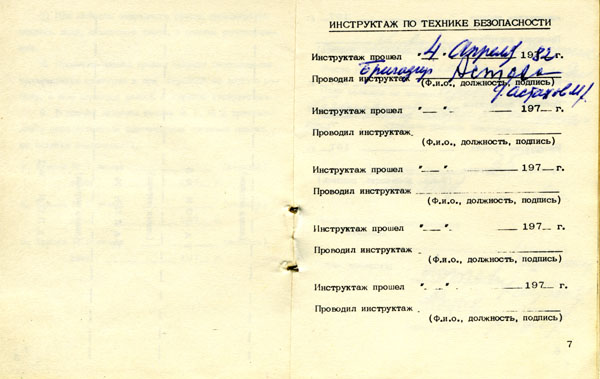 ИНСТРУКТАЖ ПО ТЕХНИКЕ БЕЗОПАСНОСТИ
Инструктаж прошел "4" Апреля 1982 г.
Бригадир
Проводил инструктаж
(Ф.и.о., должность, подпись)
Астахов
Инструктаж прошел "__" 197__ г.
Проводил инструктаж
(Ф.и.о., должность, подпись)
Инструктаж прошел "__" 197__ г.
Проводил инструктаж
(Ф.и.о., должность, подпись)
Инструктаж прошел "__" 197__ г.
Проводил инструктаж
(Ф.и.о., должность, подпись)
Инструктаж прошел "__" 197__ г.
Проводил инструктаж
(Ф.и.о., должность, подпись)
7